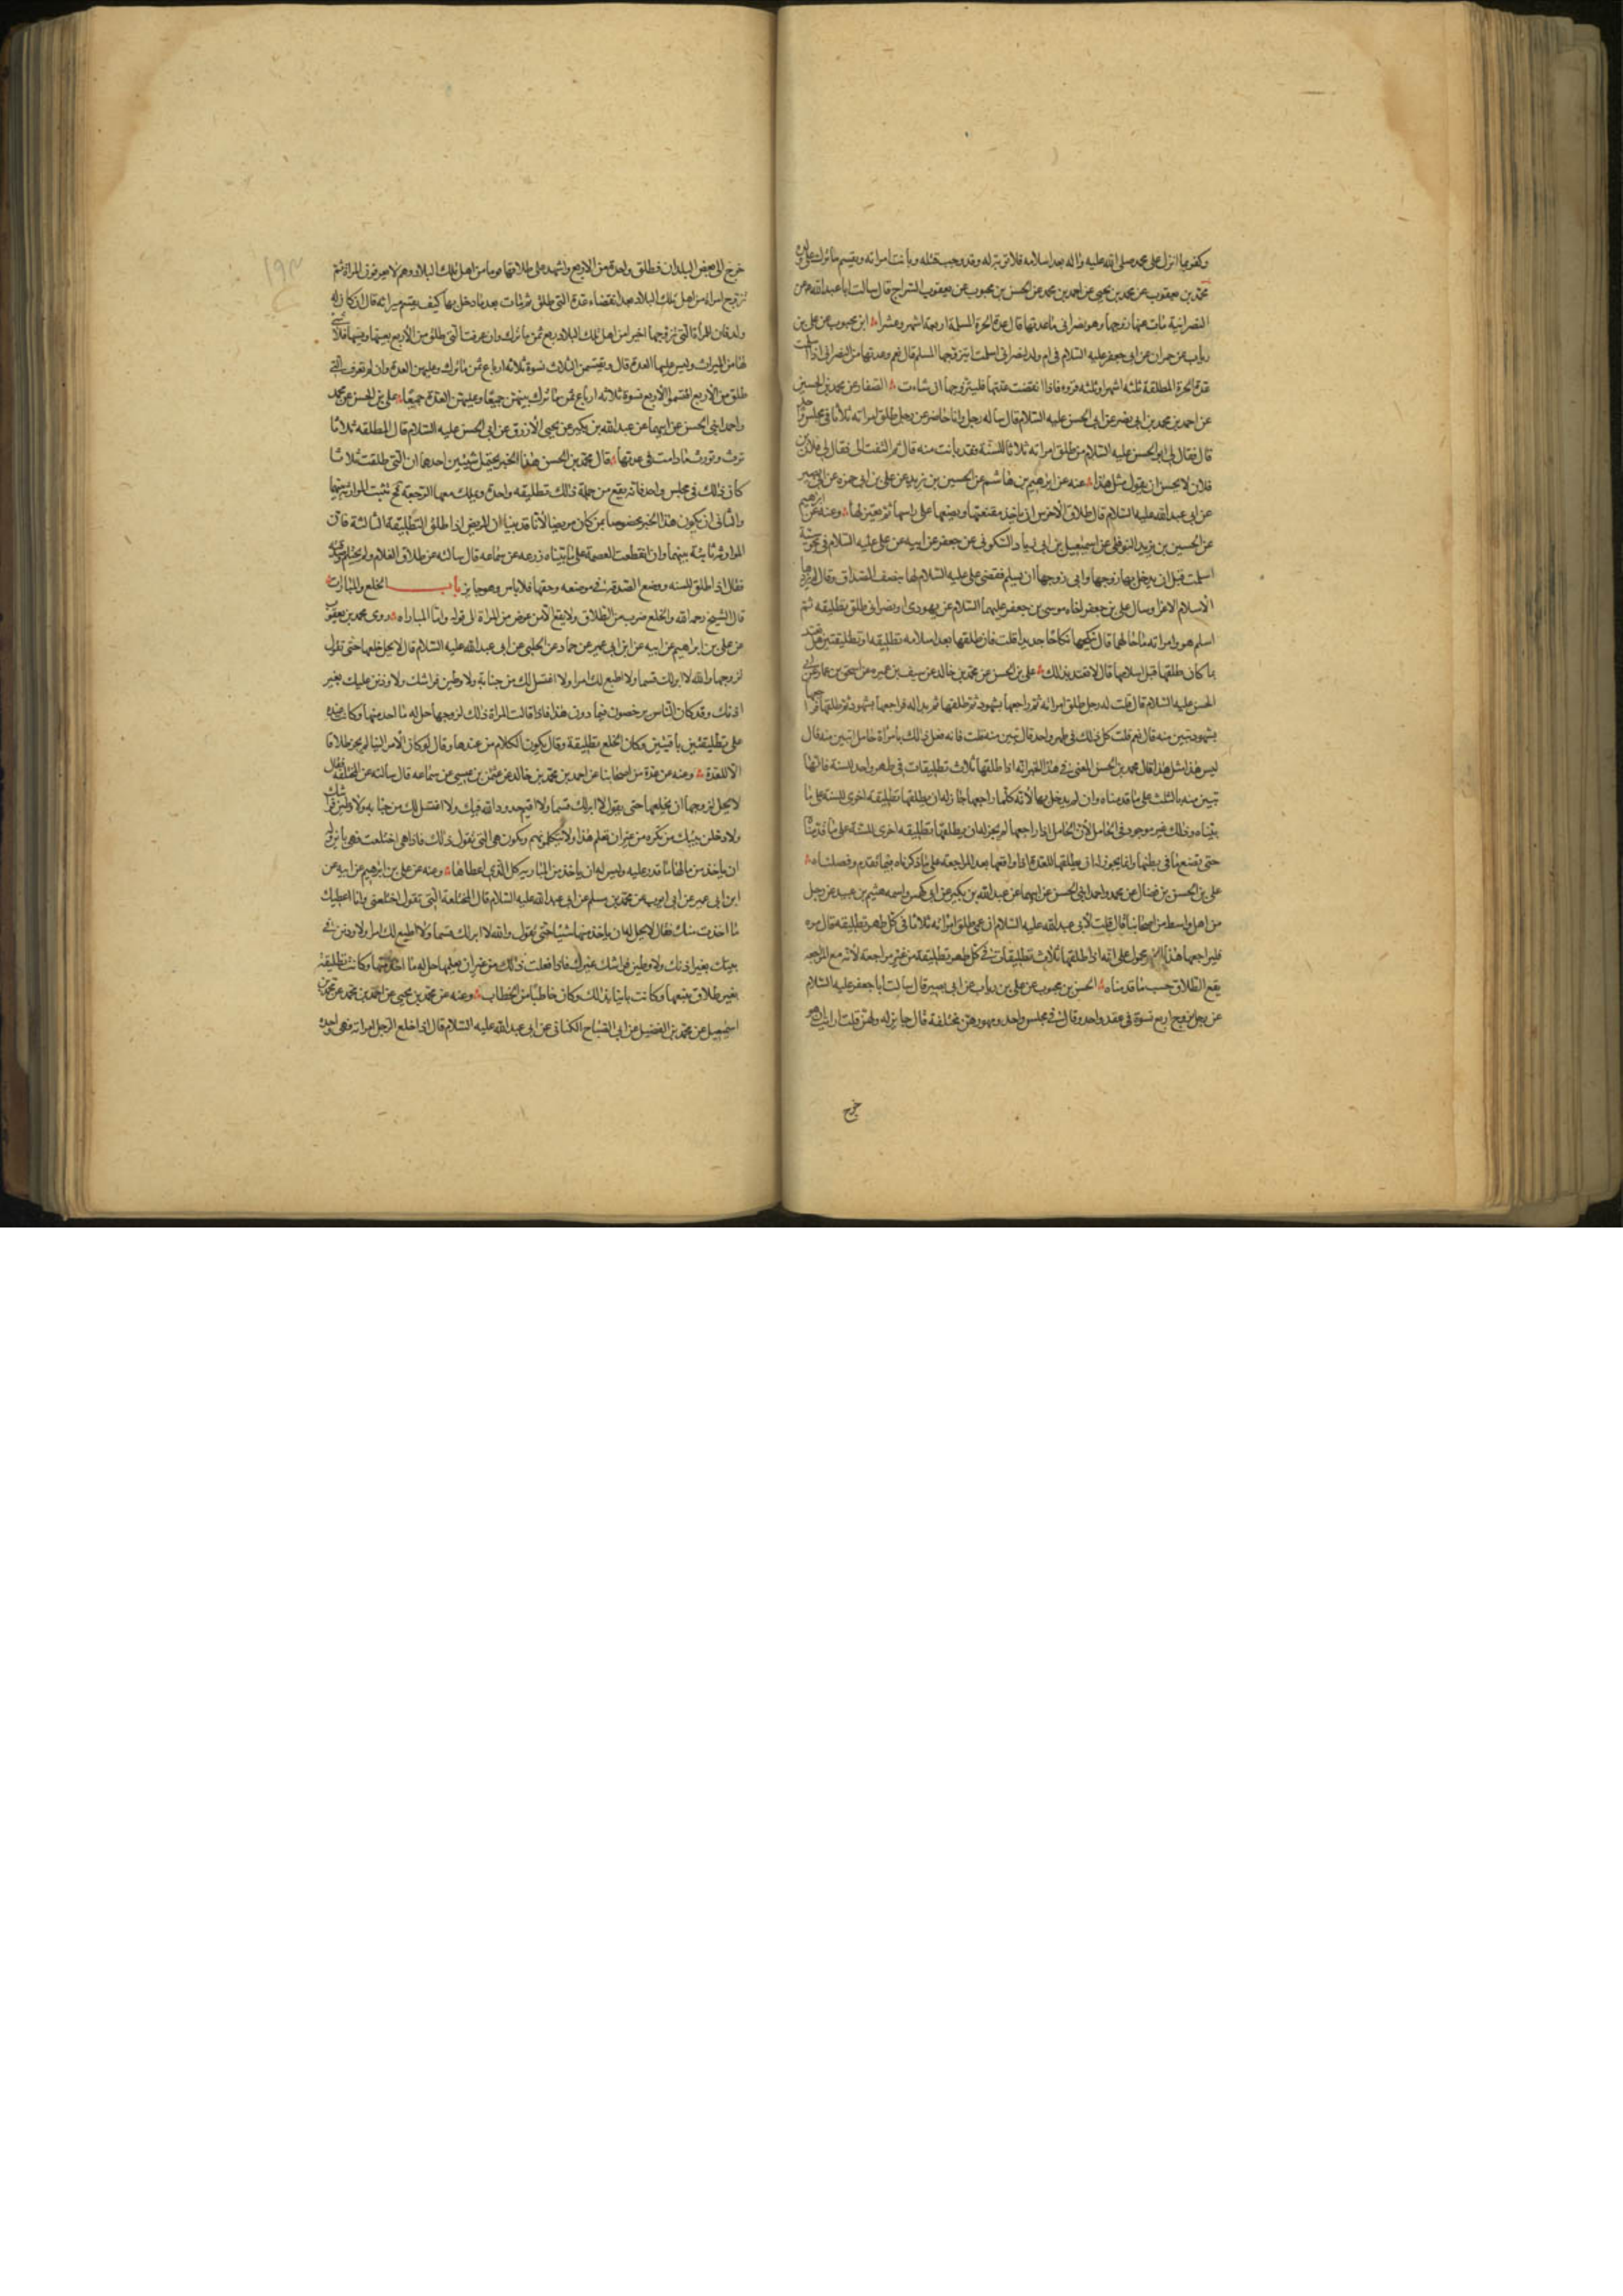 وكفر بما انزل على محمد صلى الله عليه واله بعد اسلامه فلا توبة له وقد وجب قتله وبانت امراته ويقسم ما ترك على ولده
محمد بن يعقوب عن محمد بن يحيى عن احمد بن محمد عن الحسن بن محبوب عن يعقوب السراج قال سالت ابا عبد الله عن
النصرانية مات عنها زوجها وهو نصراني ما عدتها قال عدة الحرة المسلمة اربعة اشهر وعشرا ابن محبوب عن علي بن
رياب عن حمران عن ابي جعفر عليه السلام في ام ولد لنصراني اسلمت ايتزوجها المسلم قال نعم وعدتها من النصراني اذا اسلمت
عدة الحرة المطلقة ثلثه اشهر او ثلثه قروء فاذا انقضت عدتها فليتزوجها ان شاءت الصفار عن محمد بن الحسين
عن احمد بن محمد بن ابي نصر عن ابي الحسن عليه السلام قال ساله رجل وانا حاضر عن رجل طلق امراته ثلاثا في مجلس واحد
قال فقال لي ابو الحسن عليه السلام من طلق امراته ثلاثا للسنة فقد بانت منه قال ثم التفت الى فقال لي فلان
فلان لا يحسن ان يقول مثل هذا عنه عن ابرهيم بن هاشم عن الحسين بن يزيد عن علي بن ابي حمزه عن ابي بصير
عن ابي عبد الله عليه السلام قال طلاق الاخرس ان ياخذ مقنعتها ويضعها على راسها ثم يعتزلها وعنه عن ابرهيم
عن الحسين بن يزيد النوفلي عن اسمعيل بن ابي زياد السكوني عن جعفر عن ابيه عن علي عليه السلام في مجوسية
اسلمت قبل ان يدخل بها زوجها وابى زوجها ان يسلم فقضى علي عليه السلام لها بنصف الصداق وقال لم يزدها
الاسلام الا عزا وسال علي بن جعفر اخاه موسى بن جعفر عليهما السلام عن يهودي او نصراني طلق تطليقه ثم
اسلم هو وامراته ما حالهما قال ينكحها نكاحا جديدا قلت فان طلقها بعد اسلامه تطليقه او تطليقتين هل تعتد
بما كان طلقها قبل اسلامها قال لا تعتد بذلك علي بن الحسن عن محمد بن خالد عن سيف بن عميره عن اسحق بن عمار عن ابي
الحسن عليه السلام قال قلت له رجل طلق امراته ثم راجعها بشهود ثم طلقها ثم بدا له فراجعها بشهود ثم طلقها فراجعها
بشهود تبين منه قال نعم قلت كل ذلك في طهر واحد قال تبين منه قلت فانه فعل ذلك بامراة حامل اتبين منه قال
ليس هذا مثل هذا قال محمد بن الحسن المعنى في هذا الخبر انه اذا طلقها ثلاث تطليقات في طهر واحد للسنة فانها
تبين منه بالثلث على ما قدمناه وان لم يدخل بها لانه كلما راجعها جاز له ان يطلقها تطليقه اخرى للسنة على ما
بيناه وذلك غير موجود في الحامل لان الحامل اذا راجعها لم يجز له ان يطلقها تطليقه اخرى للسنة على ما قدمناه
حتى تضع ما في بطنها وانما يجوز له ان يطلقها للعدة اذا واقعها بعد المراجعه على ما ذكرناه فيما تقدم وفصلناه
علي بن الحسن بن فضال عن محمد واحمد ابني الحسن عن ابيهما عن عبد الله بن بكير عن ابي كهمس واسمه هيثم بن عبيد عن رجل
من اهل واسط من اصحابنا قال قلت لابي عبد الله عليه السلام ان عمي طلق امراته ثلاثا في كل طهر تطليقه قال مره
فليراجعها هذا الخبر محمول على انه اذا طلقها ثلاث تطليقات في كل طهر تطليقة من غير مراجعة لانه مع المراجعه
يقع الطلاق حسب ما قدمناه الحسن بن محبوب عن علي بن رياب عن ابي بصير قال سالت ابا جعفر عليه السلام
عن رجل تزوج اربع نسوة في عقد واحد وقال في مجلس واحد ومهورهن مختلفة قال جايز له ولهن قلت ارايت ان هو
خرج
خرج الى بعض البلدان فطلق واحدة من الاربع واشهد على طلاقها قوما من اهل تلك البلاد وهم لا يعرفون المراة ثم
تزوج امراة من اهل تلك البلاد بعد انقضاء عدة التي طلق ثم مات بعد ما دخل بها كيف يقسم ميراثه قال ان كان له
ولد فان للمراة التي تزوجها اخيرا من اهل تلك البلاد ربع ثمن ما ترك وان عرفت التي طلق من الاربع بعينها ونسبها فلا شيء
لها من الميراث وليس عليها العدة قال ويقتسمن الثلاث نسوة ثلاثه ارباع ثمن ما ترك وعليهن العدة وان لم تعرف التي
طلق من الاربع اقتسمن الاربع نسوة ثلاثه ارباع ثمن ما ترك بينهن جميعا وعليهن العدة جميعا علي بن الحسن عن محمد
واحمد ابني الحسن عن ابيهما عن عبد الله بن بكير عن يحيى الازرق عن ابي الحسن عليه السلام قال المطلقه ثلاثا
ترث وتورث ما دامت في عدتها قال محمد بن الحسن هذا الخبر يحتمل شيئين احدهما ان التي طلقت ثلاثا
كان ذلك في مجلس واحد فانه يقع من جملة ذلك تطليقه واحدة ويملك معها الرجعة ثم تثبت الموارثه بينهما
والثاني ان يكون هذا الخبر مخصوصا بمن كان مريضا لانا قد بينا ان المريض اذا طلق التطليقة الثالثة فان
الموارثه ثابتة بينهما وان انقطعت العصمة على ما بيناه زرعه عن سماعه قال سالته عن طلاق الغلام ولم يحتلم وصدقته
فقال اذا طلق للسنه ووضع الصدقة في موضعه وحقها فلا باس وهو جايز باب الخلع والمبارات
قال الشيخ رحمه الله والخلع ضرب من الطلاق ولا يقع الا من عوض من المراة الى قوله واما المباراه روى محمد بن يعقوب
عن علي بن ابراهيم عن ابيه عن ابن ابي عمير عن حماد عن الحلبي عن ابي عبد الله عليه السلام قال لا يحل خلعها حتى تقول
لزوجها والله لا ابر لك قسما ولا اطيع لك امرا ولا اغتسل لك من جنابة ولاوطين فراشك ولاوذنن عليك بغير
اذنك وقد كان الناس يرخصون فيما دون هذا فاذا قالت المراة ذلك لزوجها حل له ما اخذ منها وكانت عنده
على تطليقتين باقيتين وكان الخلع تطليقة وقال يكون الكلام من عندها وقال لو كان الامر الينا لم يجز طلاقا
الا للعدة وعنه عن عدة من اصحابنا عن احمد بن محمد بن خالد عن عثمن بن عيسى عن سماعه قال سالته عن المختلعة فقال
لا يحل لزوجها ان يخلعها حتى يقول لا ابر لك قسما ولا اقيم حدود الله فيك ولا اغتسل لك من جنابه ولاوطين فراشك
ولادخلن بيتك من تكره من غير ان تعلم هذا ولا يتكلمونهم ويكون هي التي تقول ذلك فاذا هي اختلعت فهي باين وله
ان ياخذ من مالها ما قدر عليه وليس له ان ياخذ من المبارية كل الذي اعطاها وعنه عن علي بن ابرهيم عن ابيه عن
ابن ابي عمير عن ابي ايوب عن محمد بن مسلم عن ابي عبد الله عليه السلام قال المختلعة التي تقول اخلعني وانا اعطيك
ما اخذت منك فقال لا يحل له ان ياخذ منها شيئا حتى يقول والله لا ابر لك قسما ولا اطيع لك امرا ولاوذنن في
بيتك بغير اذنك ولاوطين فراشك غيرك فاذا فعلت ذلك من غير ان يعلمها حل له ما اخذ منها وكانت تطليقة
بغير طلاق يتبعها وكانت باينا بذلك وكان خاطبا من الخطاب وعنه عن محمد بن يحيى عن احمد بن محمد عن محمد بن
اسمعيل عن محمد بن الفضيل عن ابي الصباح الكناني عن ابي عبد الله عليه السلام قال اذا خلع الرجل امراته فهي واحده
١٩٣